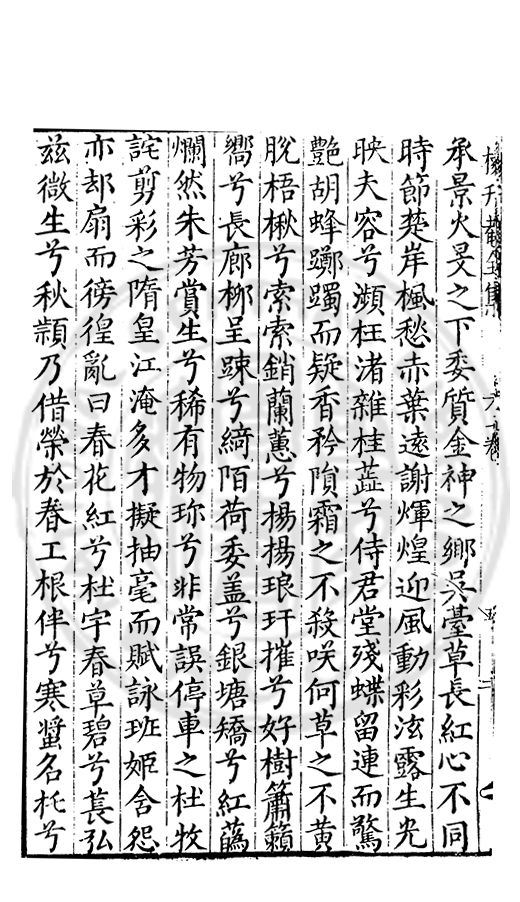 承景火旻之下委質金神之鄉吳臺草長紅心不同
時節楚岸楓愁赤葉遠謝煇煌迎風動彩泫露生光
映夫容兮瀕枉渚雜桂蕋兮侍君堂殘蝶留連而驚
艷胡蜂躑躅而疑香矜隕霜之不殺咲何草之不黄
脫梧楸兮索索銷蘭蕙兮揚揚琅玕摧兮好樹簫籟
嚮兮長廊栁呈踈兮綺陌荷委盖兮銀塘矯兮紅蘤
爛然朱芳賞生兮稀有物珎兮非常誤停車之杜牧
詫剪彩之隋皇江淹多才擬抽毫而賦詠班姬舍怨
亦却扇而徬徨亂曰春花紅兮杜宇春草碧兮萇弘
兹微生兮秋纇乃借榮於春工根伴兮寒螿名托兮